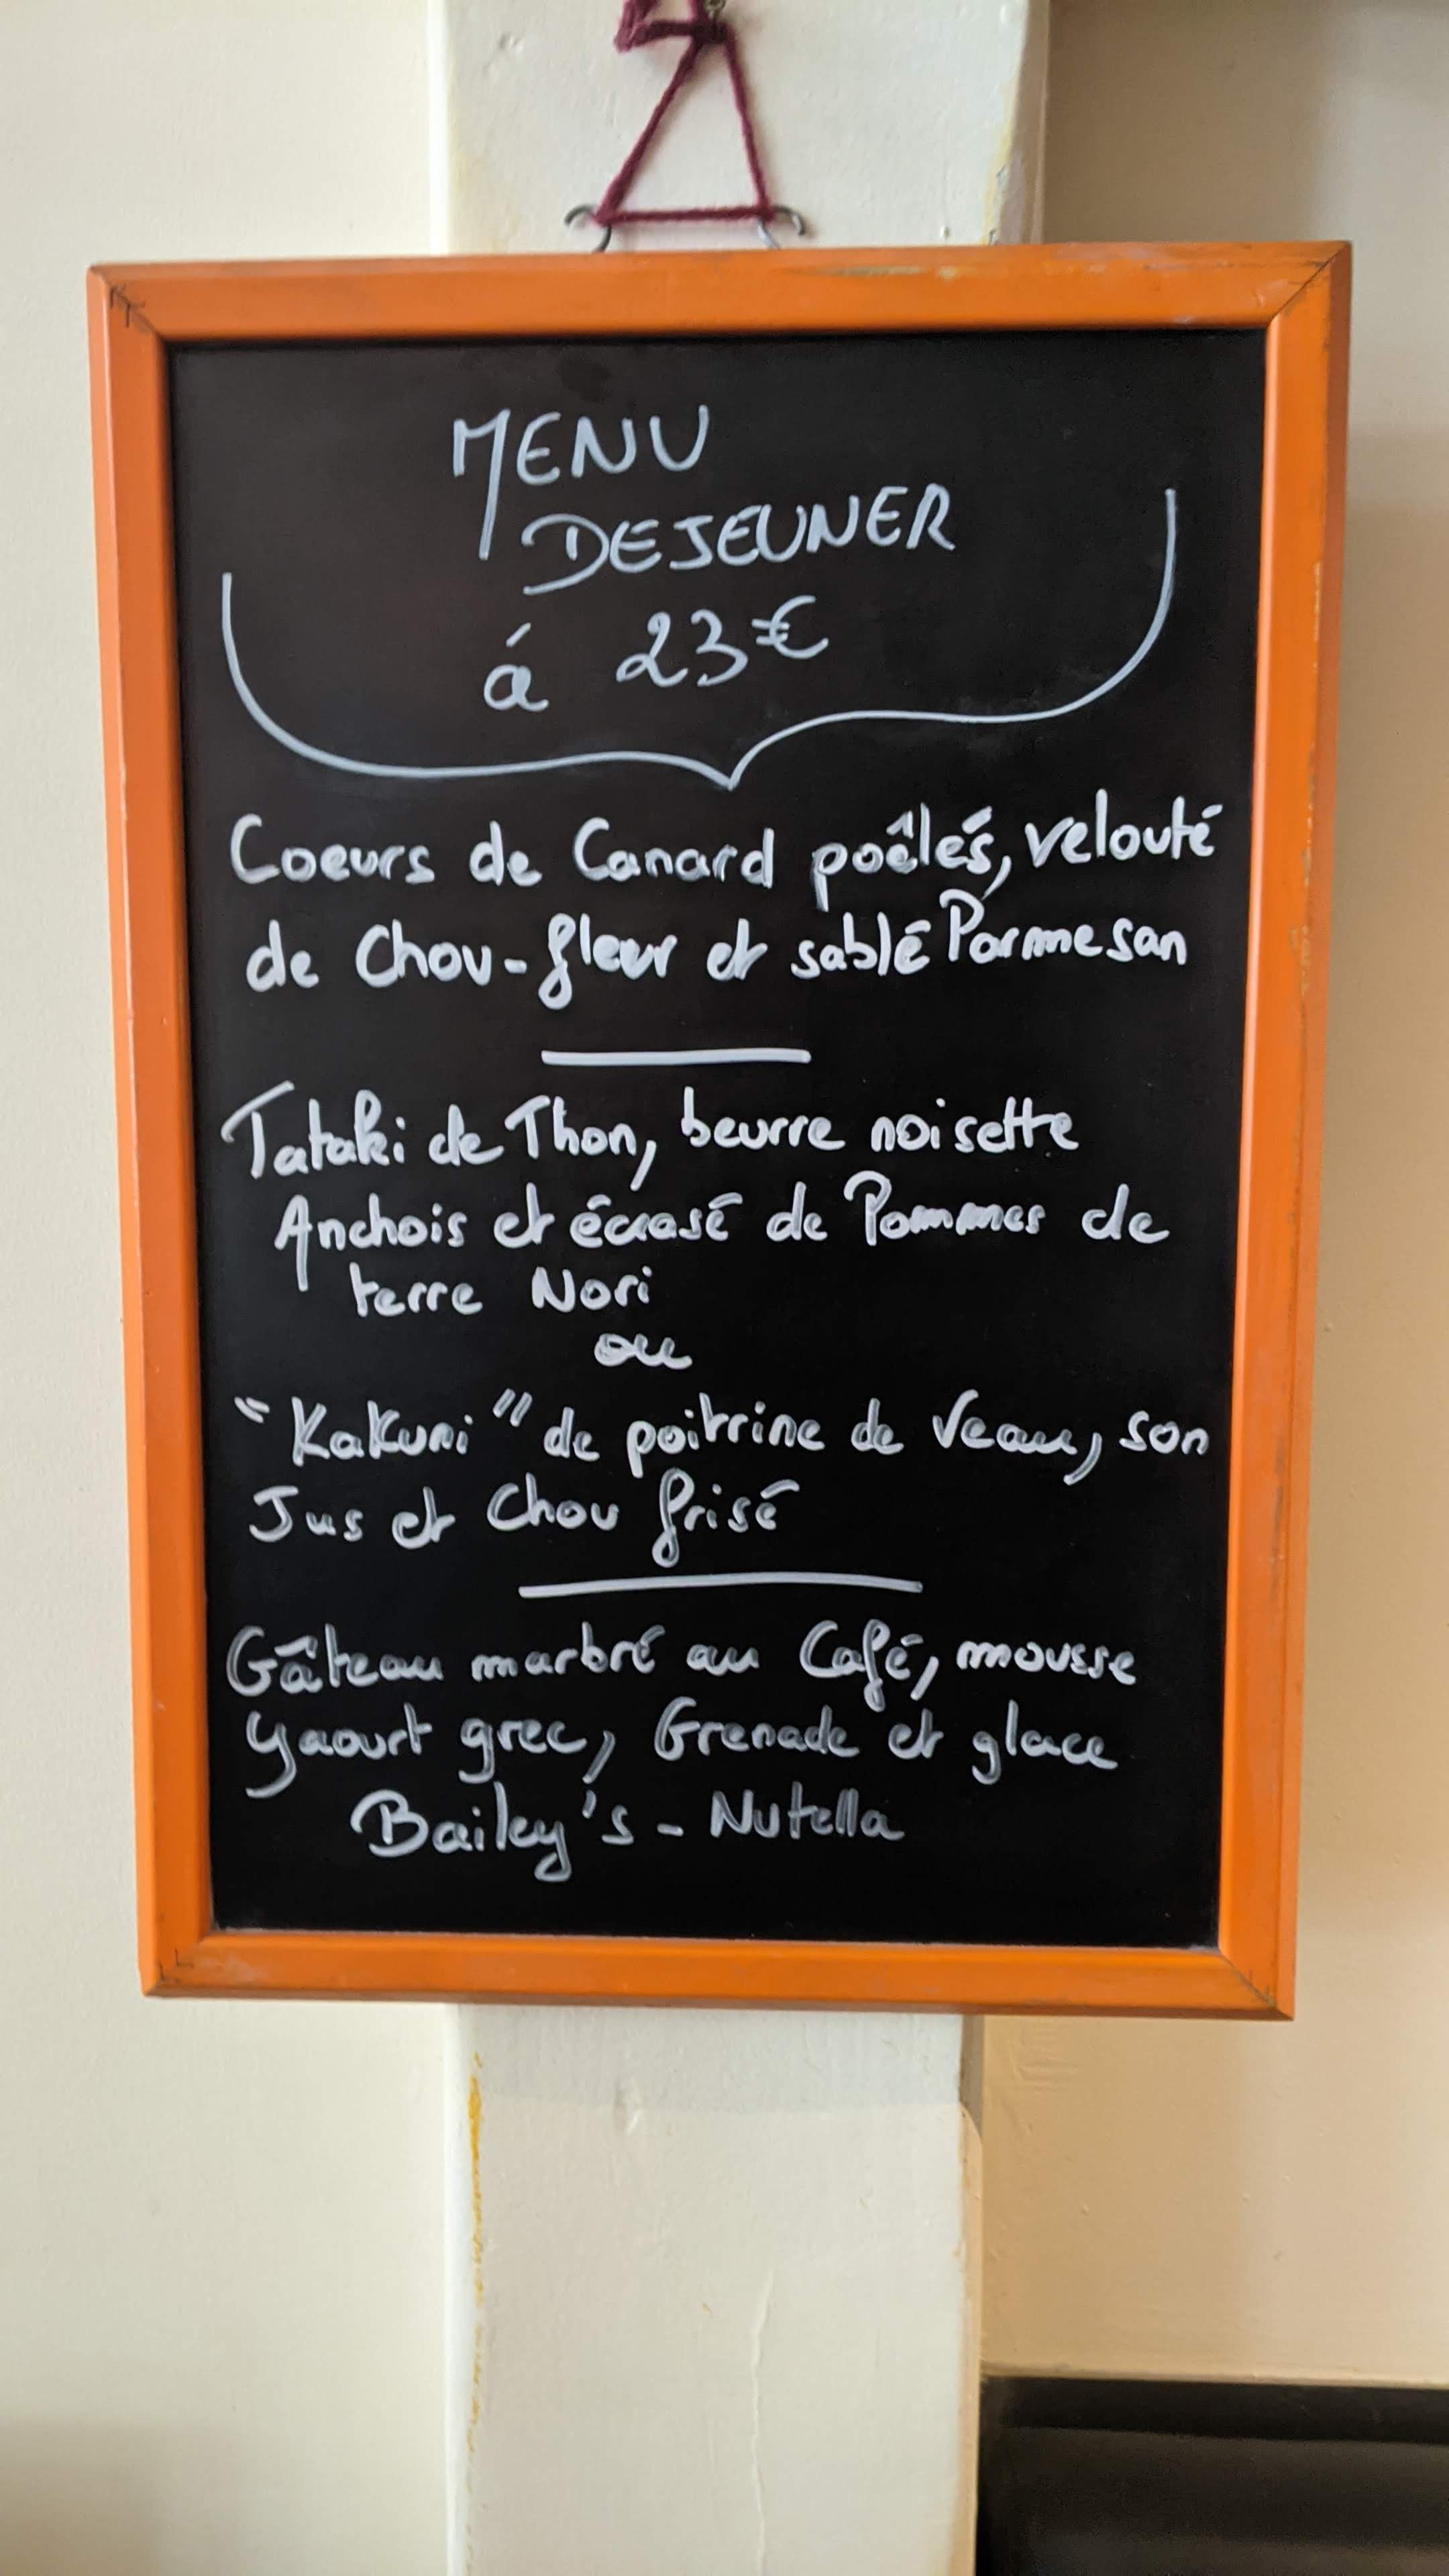 MENU
DEJEUNER
á 23€
Coeurs de Canard poêlés, velouté
de Chou-fleur et sablé Parmesan
Tataki de Thon, beurre noisette
Anchois et écrasé de Pommes de
terre Nori
ou
"Kakuni" de poitrine de Veau, son
Jus et Chou frisé
Gâteau marbré au Café, mousse
Yaourt grec, Grenade et glace
Bailey's - Nutella